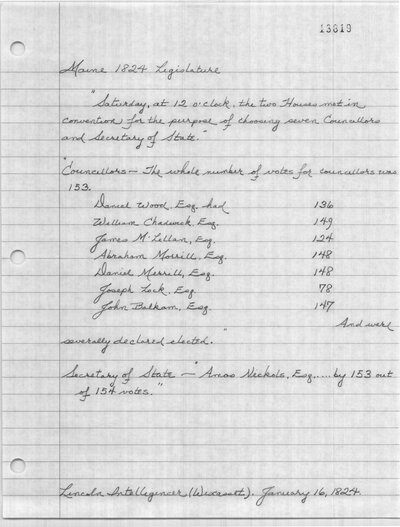 13819
Maine 1824 Legislature
"Saturday, at 12 o'clock, the two Houses met in
convention for the purpose of choosing seven Councillors
and Secretary of State."
"Councillors — The whole number of votes for councillors was
153.
Daniel Wood, Esq. had 136
William Chadwick, Esq. 149
James McLellan, Esq. 124
Abraham Morrill, Esq. 148
Daniel Merrill, Esq. 148
Joseph Lock, Esq. 78
John Balkam, Esq. 147
And were
severally declared elected."
Secretary of State — "Amos Nichols, Esq..... by 153 out
of 154 votes."
Lincoln Intelligencer (Wiscasset). January 16, 1824.